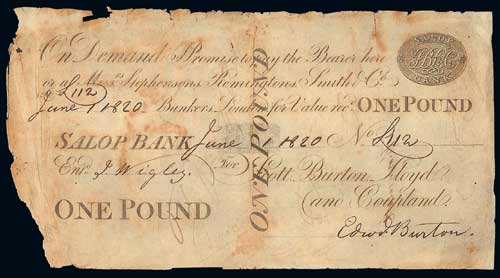 On Demand I Promise to pay the Bearer here
SALOP
BANK
or at Messrs. Stephensons Remingtons Smith & Co.
L112
June 1 1820 Bankers London for Value recd. ONE POUND
ONE POUND
SALOP BANK June 1 1820 No. L112
Entd. J. Wigley. For Scott Burton Lloyd
and Coupland
ONE POUND
Edwd. Burton.